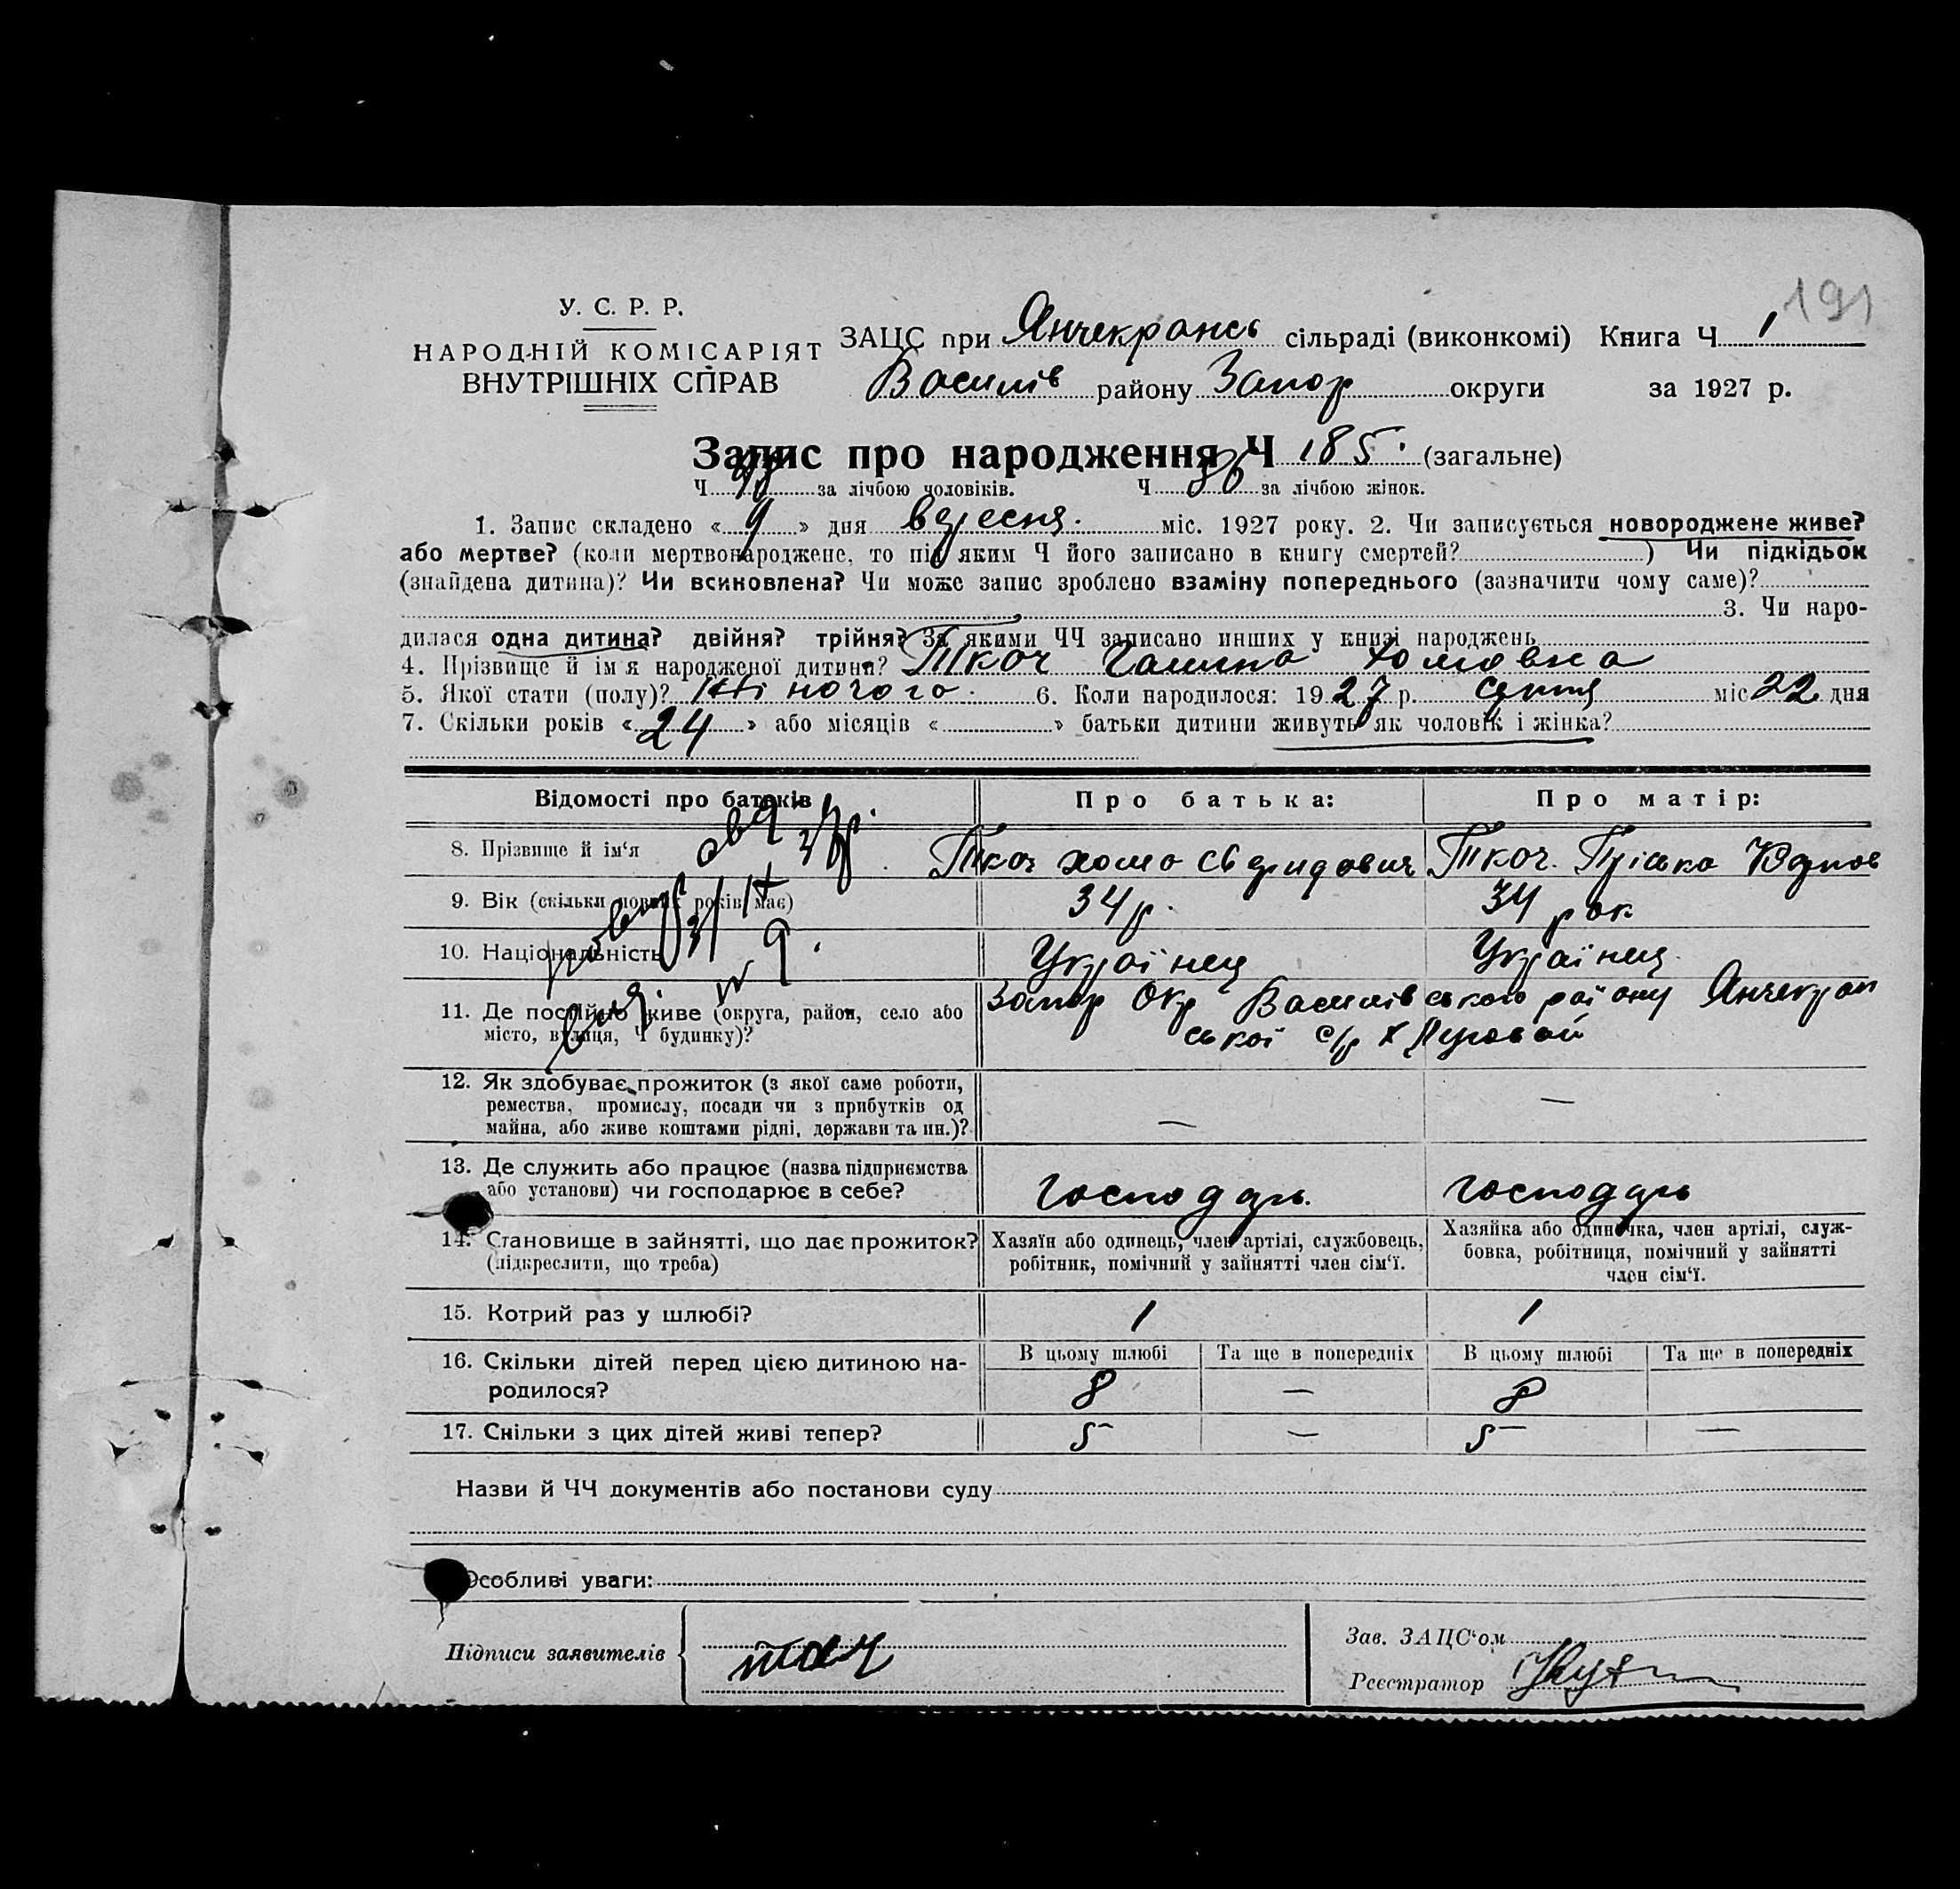 191
У. С. Р. Р.
НАРОДНІЙ КОМІСАРІЯТ
ВНУТРІШНІХ СПРАВ
ЗАЦС при Янчекрансь сільраді (виконкомі) Книга Ч 1
Василів району Запор округи за 1927 р.
Запис про народження Ч 185. (загальне)
Ч за лічбою чоловіків. Ч 86 за лічбою жінок.
1. Запис складено « 9 » дня вересня. міс. 1927 року. 2. Чи записується новороджене живе?
або мертве? (коли мертвонароджене, то під яким Ч його записано в книгу смертей? ) Чи підкідьок
(знайдена дитина)? Чи всиновлена? Чи може запис зроблено взаміну попереднього (зазначити чому саме)?
3. Чи наро-
дилася одна дитина? двійня? трійня? За якими ЧЧ записано инших у книзі народжень
4. Прізвище й ім я народженої дитини? Ткач Галина Хомовна
5. Якої стати (полу)? жіночого. 6. Коли народилося: 1927 р. серпня міс 22 дня
7. Скільки років « 24 » або місяців « » батьки дитини живуть як чоловік і жінка?
Відомості про батьків Про батька: Про матір:
8. Прізвище й ім‘я Ткач Хома Свиридович Ткач. Пріська Карпов
9. Вік (скільки повних років має) 34 р. 34 рок
10. Національність Українец Українец.
11. Де постійно живе (округа, район, село або Запор Окр Василівського району Янчекран
місто, вулиця, Ч будинку)? ської с/р х
12. Як здобуває прожиток (з якої саме роботи,
ремества, промислу, посади чи з прибутків од
майна, або живе коштами рідні, держави та ин.)? — —
13. Де служить або працює (назва підприємства
або установи) чи господарює в себе? господарь. господарь
14. Становище в зайнятті, що дає прожиток? Хазяїн або одинець, член артілі, службовець, Хазяйка або одиночка, член артілі, служ-
(підкреслити, що треба) робітник, помічний у зайнятті член сім‘ї. бовка, робітниця, помічний у зайнятті
член сім‘ї.
15. Котрий раз у шлюбі? 1 1
16. Скільки дітей перед цією дитиною на- В цьому шлюбі Та ще в попередніх В цьому шлюбі Та ще в попередніх
родилося? 8 — 8
17. Скільки з цих дітей живі тепер? 5 — 5 —
Назви й ЧЧ документів або постанови суду
Особливі уваги:
Підписи заявителів
Зав. ЗАЦС‘ом
Реєстратор